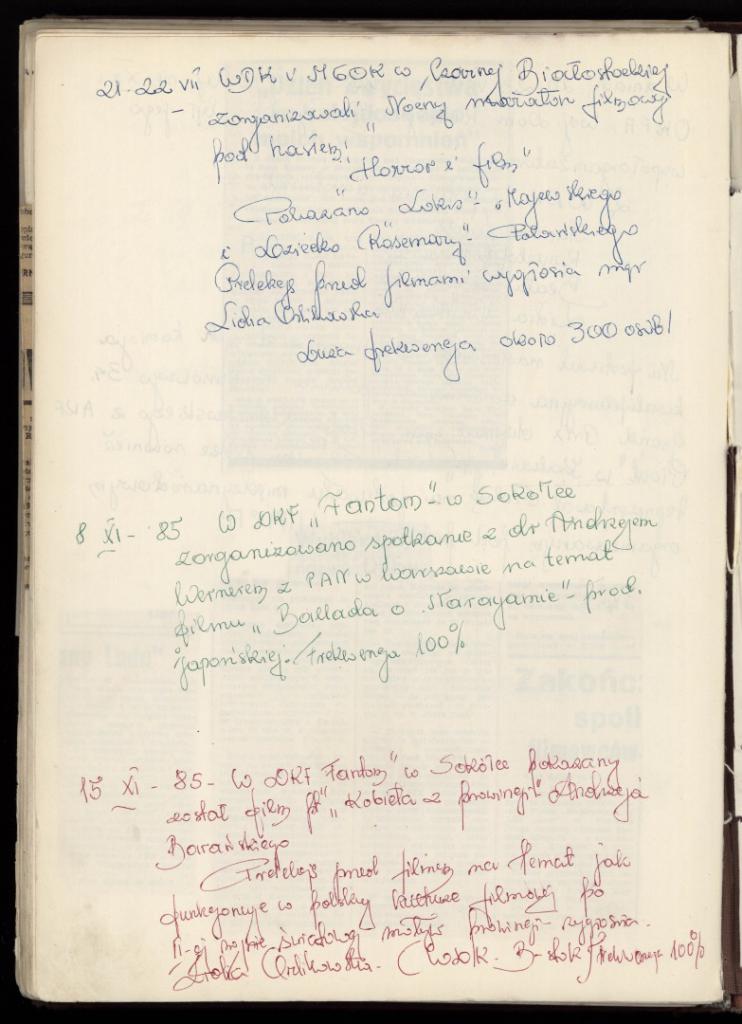 21-22 VII WDK i MGOK w Czarnej Białostockiej
- zorganizowali "Nocny maraton filmowy
pod hasłem: "Horror i film"
Pokazano "Lokis" - Majewskiego
i Dziecko Rosemary" - Polańskiego
Prelekcję przed filmami wygłosiła mgr
Lidia
Duża frekwencja około 300 osób/
8 XI - 85 W DKF "Fantom" w Sokółce
zorganizowano spotkanie z dr Andrzejem
Wernerem z PAN w Warszawie na temat
filmu "Ballada o Narayamie" - prod.
japońskiej. /Frekwencja 100%
15 XI - 85 - W DKF Fantom" w Sokółce pokazany
został film pt "Kobieta z prowincji" Andrzeja
Barańskiego
Prelekcję przed filmem na temat jak
funkcjonuje w polskiej kulturze filmowej po
II-ej wojnie światowej motyw prowincji wygłosiła.
(WDK. B-stok / Frekwencja 100%